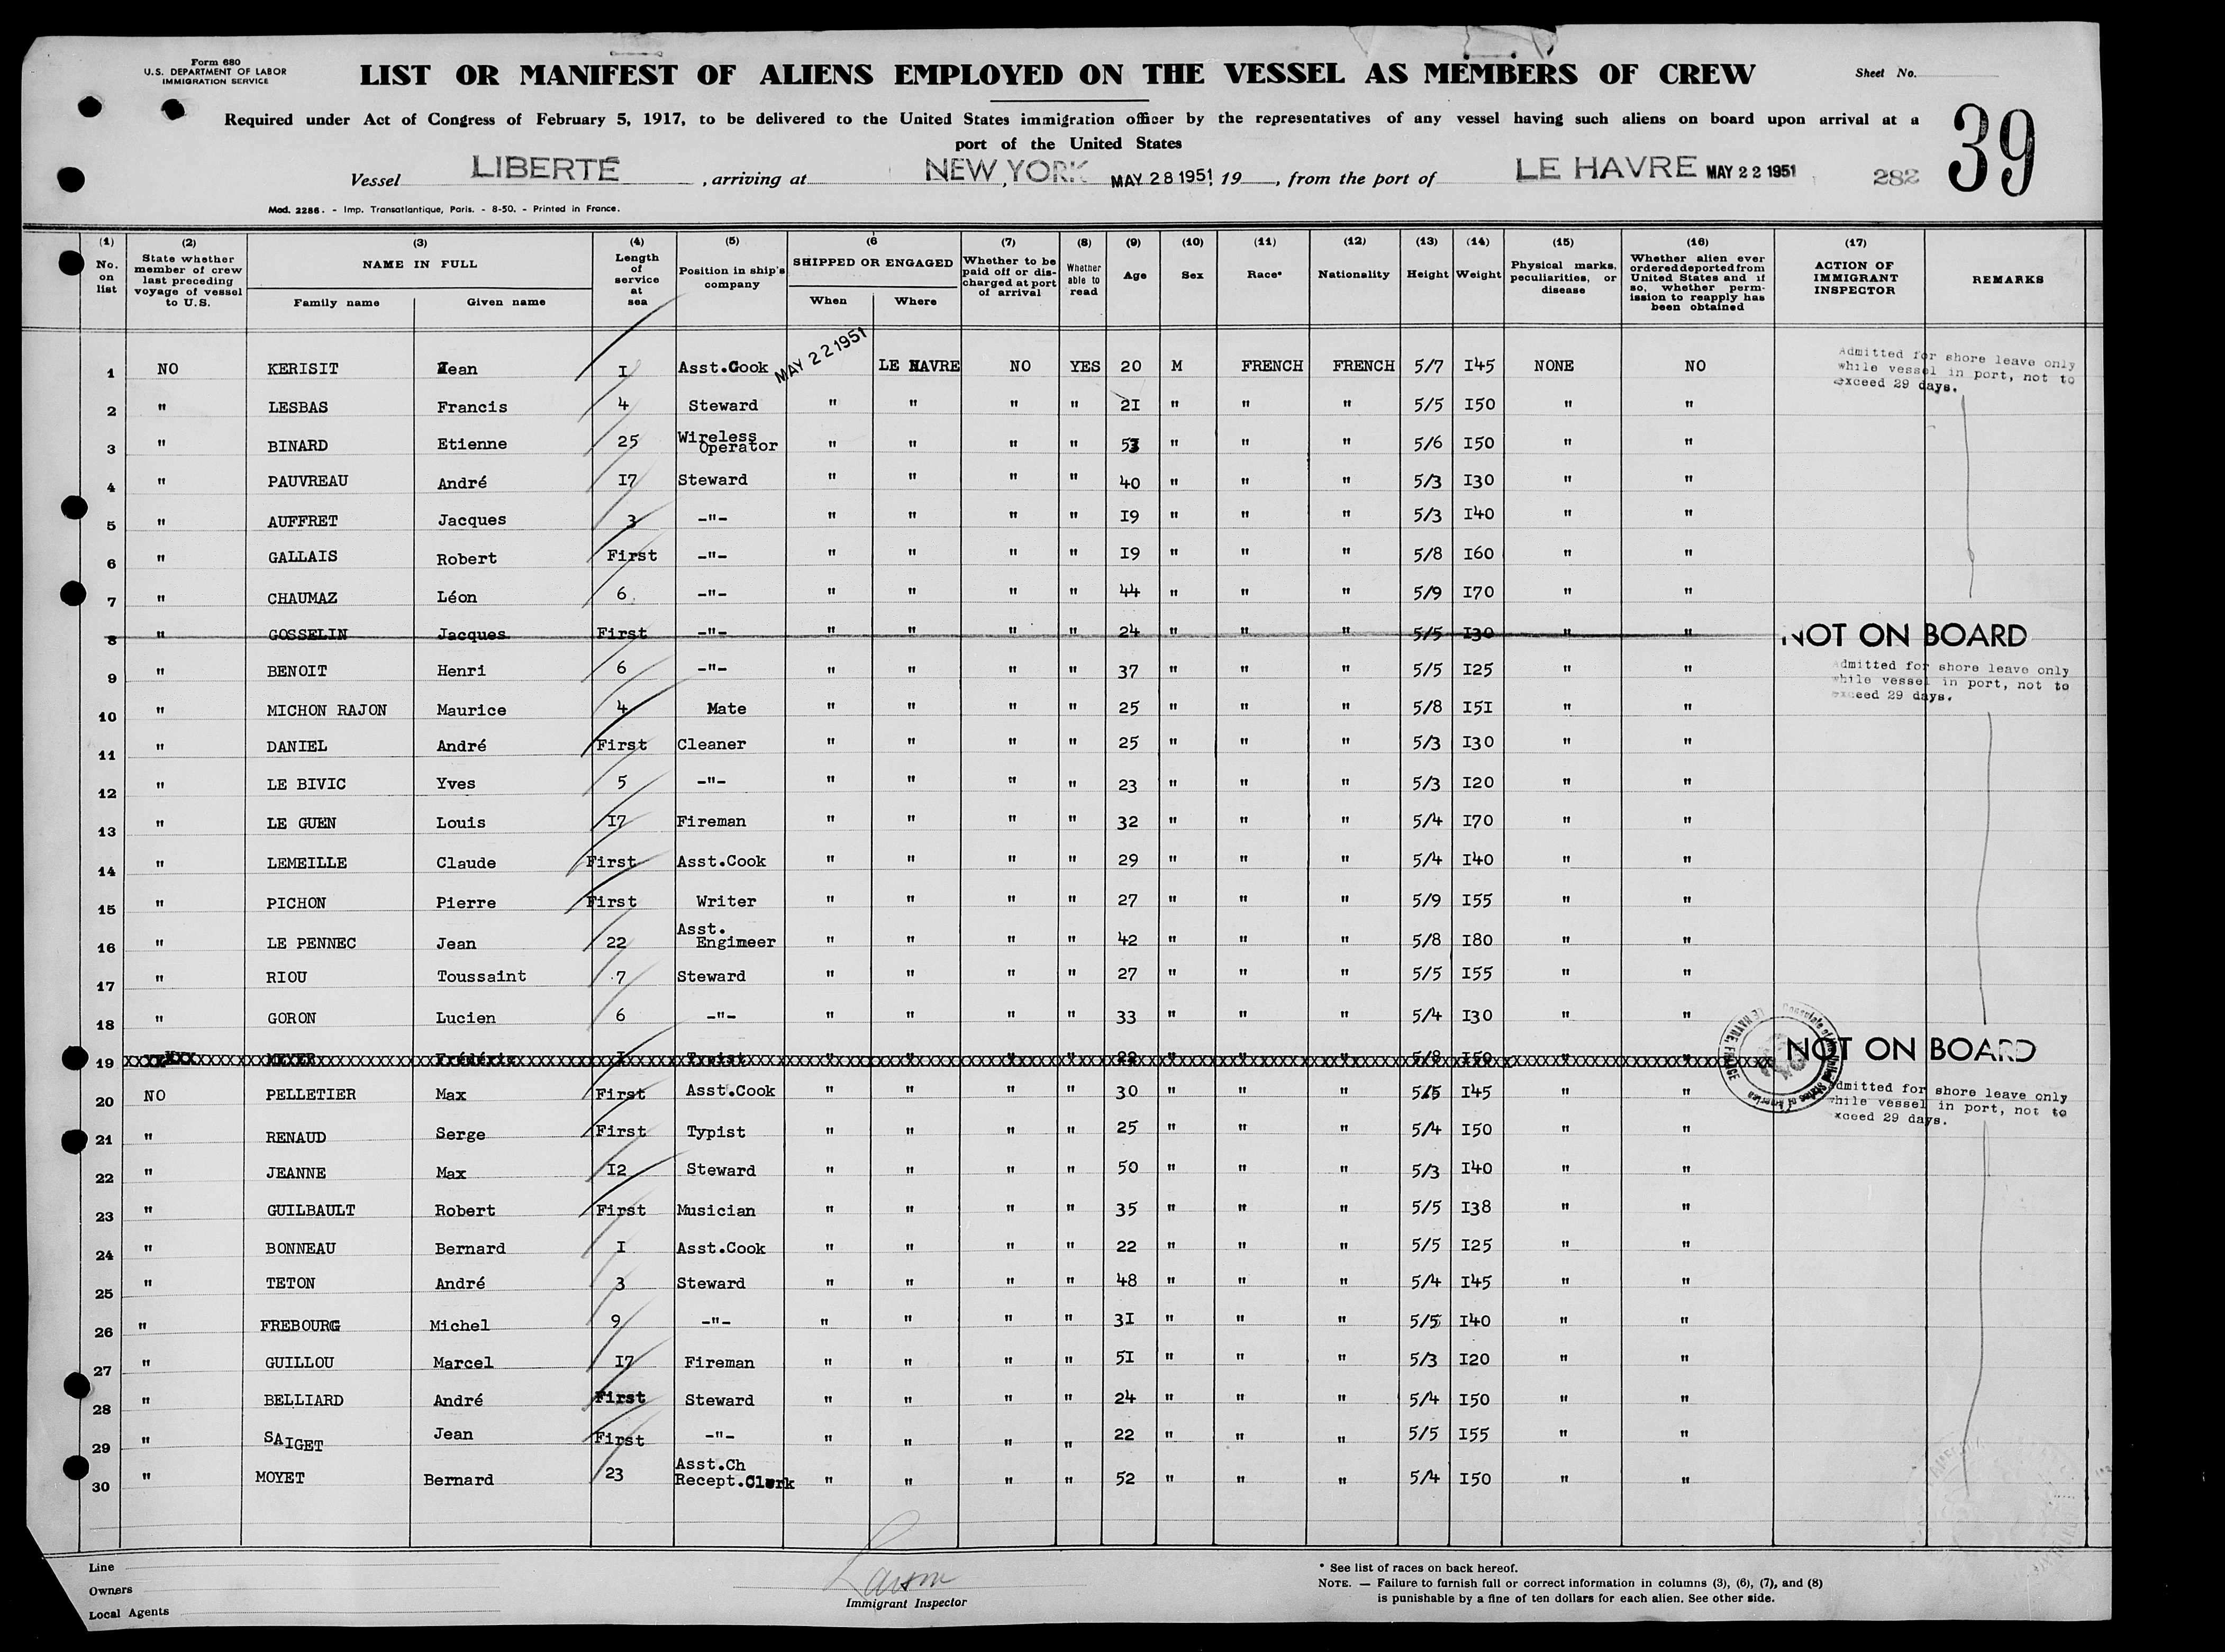 Form 680
U.S. DEPARTMENT OF LABOR
IMMIGRATION SERVICE
LIST OR MANIFEST OF ALIENS EMPLOYED ON THE VESSEL AS MEMBERS OF CREW
Sheet No.
39
Required under Act of Congress of February 5, 1917, to be delivered to the United States immigration officer by the representatives of any vessel having such aliens on board upon arrival at a
port of the United States
Vessel LIBERTÉ , arriving at NEW YORK, MAY 28 1951, 19 , from the port of LE HAVRE MAY 22 1951 282
Mod. 2286. - Imp. Transatlantique, Paris. - 8-50. - Printed in France.
(1) (2) (3) (4) (5) (6 (7) (8) (9) (10) (11) (12) (13) (14) (15) (16) (17)
No. on list
State whether member of crew last preceding voyage of vessel to U.S.
NAME IN FULL
Family name Given name
Length of service at sea
Position in ship's company
SHIPPED OR ENGAGED
When Where
Whether to be paid off or discharged at port of arrival
Whether able to read
Age Sex Race* Nationality Height Weight
Physical marks, peculiarities, or disease
Whether alien ever ordered deported from United States and if so, whether permission to reapply has been obtained
ACTION OF IMMIGRANT INSPECTOR
REMARKS
1 NO KERISIT Jean I Asst.Cook MAY 22 1951 LE HAVRE NO YES 20 M FRENCH FRENCH 5/7 I45 NONE NO
Admitted for shore leave only
while vessel in port, not to
exceed 29 days.
2 " LESBAS Francis 4 Steward " " " " 2I " " " 5/5 I50 " "
3 " BINARD Etienne 25 Wireless Operator " " " " 53 " " " 5/6 I50 " "
4 " PAUVREAU André I7 Steward " " " " 40 " " " 5/3 I30 " "
5 " AUFFRET Jacques 3 -"- " " " " I9 " " " 5/3 I40 " "
6 " GALLAIS Robert First -"- " " " " I9 " " " 5/8 I60 " "
7 " CHAUMAZ Léon 6 -"- " " " " 44 " " " 5/9 I70 " "
8 " GOSSELIN Jacques First -"- " " " " 24 " " " 5/5 I30 " " NOT ON BOARD
9 " BENOIT Henri 6 -"- " " " " 37 " " " 5/5 I25 " "
Admitted for shore leave only
while vessel in port, not to
exceed 29 days.
10 " MICHON RAJON Maurice 4 Mate " " " " 25 " " " 5/8 I5I " "
11 " DANIEL André First Cleaner " " " " 25 " " " 5/3 I30 " "
12 " LE BIVIC Yves 5 -"- " " " " 23 " " " 5/3 I20 " "
13 " LE GUEN Louis I7 Fireman " " " " 32 " " " 5/4 I70 " "
14 " LEMEILLE Claude First Asst.Cook " " " " 29 " " " 5/4 I40 " "
15 " PICHON Pierre First Writer " " " " 27 " " " 5/9 I55 " "
16 " LE PENNEC Jean 22 Asst. Engimeer " " " " 42 " " " 5/8 I80 " "
17 " RIOU Toussaint 7 Steward " " " " 27 " " " 5/5 I55 " "
18 " GORON Lucien 6 -"- " " " " 33 " " " 5/4 I30 " "
19 MEYER Frédéric I Typist " " " " 22 " " " 5/8 I50 " " NOT ON BOARD
Consulate of the United States of America
LE HAVRE FRANCE
20 NO PELLETIER Max First Asst.Cook " " " " 30 " " " 5/5 I45 " "
Admitted for shore leave only
while vessel in port, not to
exceed 29 days.
21 " RENAUD Serge First Typist " " " " 25 " " " 5/4 I50 " "
22 " JEANNE Max I2 Steward " " " " 50 " " " 5/3 I40 " "
23 " GUILBAULT Robert First Musician " " " " 35 " " " 5/5 I38 " "
24 " BONNEAU Bernard I Asst.Cook " " " " 22 " " " 5/5 I25 " "
25 " TETON André 3 Steward " " " " 48 " " " 5/4 I45 " "
26 " FREBOURG Michel 9 -"- " " " " 3I " " " 5/5 I40 " "
27 " GUILLOU Marcel I7 Fireman " " " " 5I " " " 5/3 I20 " "
28 " BELLIARD André First Steward " " " " 24 " " " 5/4 I50 " "
29 " SAIGET Jean First -"- " " " " 22 " " " 5/5 I55 " "
30 " MOYET Bernard 23 Asst.Ch Recept.Clerk " " " " 52 " " " 5/4 I50 " "
Line
Owners
Local Agents
Larson
Immigrant Inspector
* See list of races on back hereof.
NOTE. — Failure to furnish full or correct information in columns (3), (6), (7), and (8)
is punishable by a fine of ten dollars for each alien. See other side.